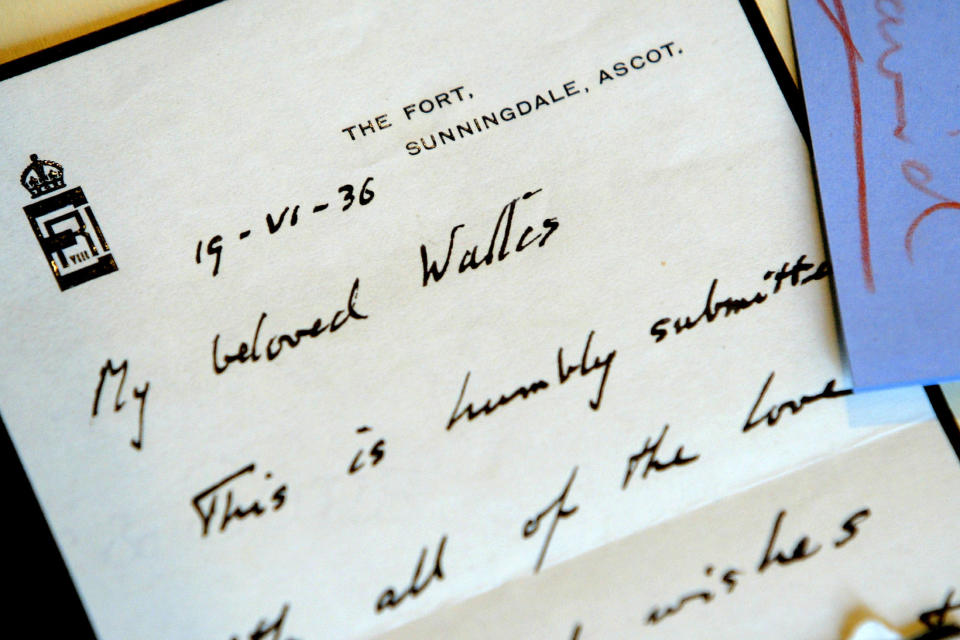 THE FORT,
SUNNINGDALE, ASCOT.
19-VI-36
My beloved Wallis
This is humbly submitte
all of the love
wishes